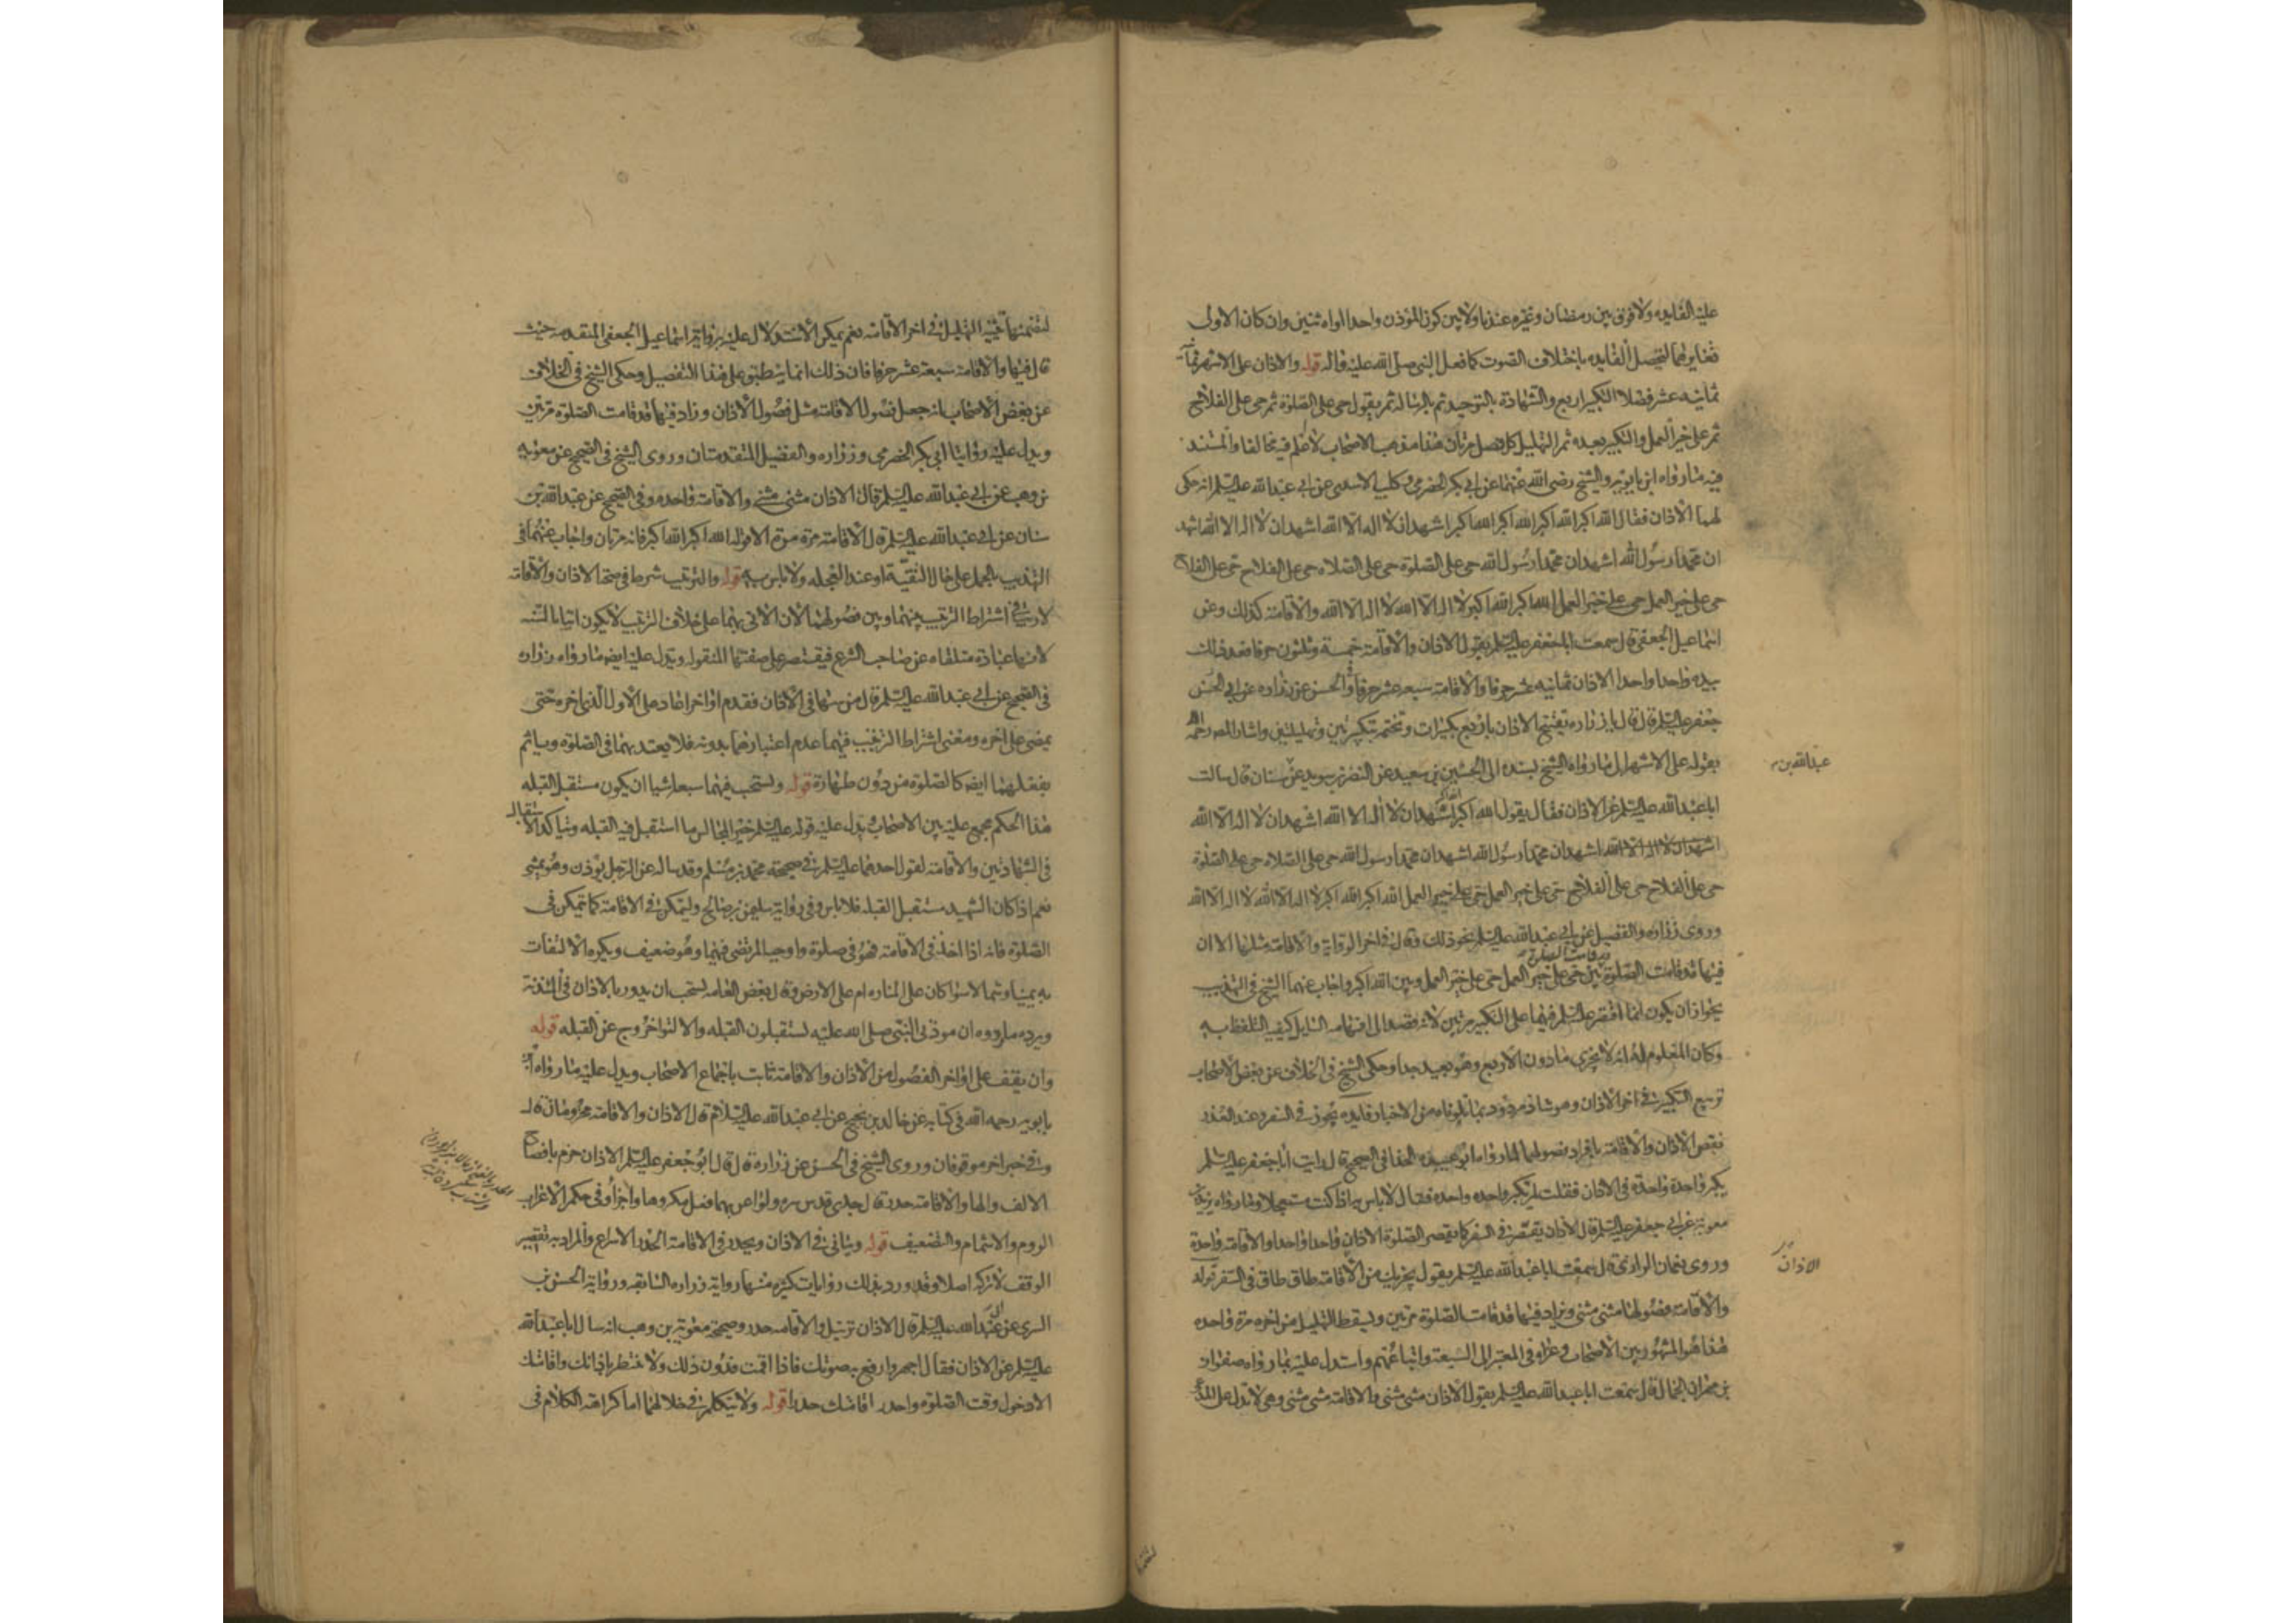 عليه الفايده ولا فرق بين رمضان وغيره عندنا ولا بين كون المؤذن واحدا او اثنين وان كان الاولى
تغايرهما لتحصل الفايده باختلاف الصوت كما فعل النبي صلى الله عليه وآله قوله والاذان على الاشهر
ثمانية عشر فصلا التكبير اربع والشهادة بالتوحيد ثم بالرسالة ثم يقول حى على الصلوة ثم حى على الفلاح
ثم على خير العمل والتكبير بعده ثم التهليل كل فصل مرتان هذا مذهب الاصحاب لا اعلم فيه مخالفا والمستند
فيه ما رواه ابن بابويه والشيخ رضى الله عنهما عن ابى بكر الحضرمى وكليب الاسدى عن ابى عبد الله عليه السلم انه حكى
لهما الاذان فقال الله اكبر الله اكبر الله اكبر الله اكبر اشهد ان لا اله الا الله اشهد ان لا اله الا الله اشهد
ان محمدا رسول الله اشهد ان محمدا رسول الله حى على الصلوة حى على الصلاه حى على الفلاح حى على الفلاح
حى على خير العمل حى على خير العمل الله اكبر الله اكبر لا اله الا الله لا اله الا الله والاقامة كذلك وعن
اسماعيل الجعفى قال سمعت ابا جعفر عليه السلم يقول الاذان والاقامة خمسة وثلثون حرفا فعد ذلك
بيده واحدا واحدا الاذان ثمانيه عشر حرفا والاقامة سبعه عشر حرفا والحسن عن زراره عن ابى
جعفر عليه السلم قال قال يا زراره تفتتح الاذان باربع تكبيرات وتختمه بتكبيرتين وتهليلتين واشار المصـ رحمه الله
بقوله على الاشهر الى ما رواه الشيخ بسنده الى الحسين بن سعيد عن النضر بن سويد عن سنان قال سالت
عبد الله بن
ابا عبد الله عليه السلم عن الاذان فقال يقول الله اكبر الله اكبر اشهد ان لا اله الا الله اشهد ان لا اله الا الله
اشهد ان لا اله الا الله اشهد ان محمدا رسول الله اشهد ان محمدا رسول الله حى على الصلاه حى على الصلوة
حى على الفلاح حى على الفلاح حى على خير العمل حى على خير العمل الله اكبر الله اكبر لا اله الا الله لا اله الا الله
وروى زراره والفضيل عن ابى عبد الله عليه السلم نحو ذلك وقال فى اخر الرواية والاقامة مثلها الا ان
فيها قد قامت الصلوة قد قامت الصلوة بين حى على خير العمل حى على خير العمل وبين الله اكبر واجاب عنهما الشيخ فى التهذيب
بجواز ان يكون انما اقتصر عليه السلم فيها على التكبير مرتين لانه قصد الى افهامه السايل كيفيه التلفظ به
وكان المعلوم له انه لا يجزى ما دون الاربع وهو بعيد جدا وحكى الشيخ فى الخلاف عن بعض الاصحاب
تربيع التكبير فى اخر الاذان وهو شاذ مردود بما تلوناه من الاخبار فايده يجوز فى السفر وعند العذر
نقص الاذان والاقامة بافراد فصولهما لما رواه ابو عبيده الحذا فى الصحيح قال رايت ابا جعفر عليه السلم
يكبر واحدة واحدة فى الاذان فقلت لم تكبر واحده واحده فقال لا باس به اذا كنت مستعجلا وما رواه
معوية عن ابى جعفر عليه السلم قال الاذان يقصر فى السفر كما يقصر الصلوة الاذان واحدا واحدا والاقامة واحدة
وروى نعمان الرازى قال سمعت ابا عبد الله عليه السلم يقول يجزيك من الاقامة طاق طاق فى السفر قوله
الاذان
والاقامة فصولها مثنى مثنى ويزاد فيها قد قامت الصلوة مرتين ويسقط التهليل من اخره مرة واحده
هذا هو المشهور بين الاصحاب وعزاه فى المعتبر الى السبعة واتباعهم واستدل عليه بما رواه صفوان
بن مهران الجمال قال سمعت ابا عبد الله عليه السلم يقول الاذان مثنى مثنى والاقامة مثنى مثنى وهى لا تدل على
لتضمنها تثنية التهليل فى اخر الاقامة نعم يمكن الاستدلال عليه برواية اسماعيل الجعفى المتقدمه حيث
قال فيها والاقامة سبعة عشر حرفا فان ذلك انما ينطبق على هذا التفصيل وحكى الشيخ فى الخلاف
عن بعض الاصحاب انه جعل فصول الاقامة مثل فصول الاذان وزاد فيها قد قامت الصلوة مرتين
ويدل عليه روايتا ابى بكر الحضرمى وزراره والفضيل المتقدمتان وروى الشيخ فى الصحيح عن معوية
بن وهب عن ابى عبد الله عليه السلم قال الاذان مثنى مثنى والاقامة واحده وفى الصحيح عن عبد الله بن
سنان عن ابى عبد الله عليه السلم قال الاقامة مرة مرة الا قوله الله اكبر الله اكبر فانه مرتان واجاب عنهما فى
التهذيب بالحمل على حال التقية او عند العجله ولا باس به قوله والترتيب شرط فى صحة الاذان والاقامة
لا ريب فى اشتراط الترتيب بينهما وبين فصولهما لان الاتى بهما على خلاف الترتيب لا يكون اتيا بالسنه
لانها عبادة متلقاه عن صاحب الشرع فيقتصر على صفتها المنقوله ويدل عليه ايضـ ما رواه زراره
فى الصحيح عن ابى عبد الله عليه السلم قال من سها فى الاذان فقدم او اخر اعاد على الاول الذى اخره حتى
يمضى على اخره ومعنى اشتراط الترتيب فيهما عدم اعتبارهما بدونه فلا يعتد بهما فى الصلوة وياثم
بفعلهما ايضـ كالصلوة من دون طهارة قوله ويستحب فيهما سبعة اشيا ان يكون مستقبل القبله
هذا الحكم مجمع عليه بين الاصحاب ويدل عليه قوله عليه السلم خير المجالس ما استقبل فيه القبله ويتاكد الاستقبال
فى الشهادتين والاقامة لقول احدهما عليه السلم فى صحيحة محمد بن مسلم وقد ساله عن الرجل يؤذن وهو يمشى
نعم اذا كان التشهد مستقبل القبله فلا باس وفى رواية سليمن بن صالح وليتمكن فى الاقامة كما يتمكن فى
الصلوة فانه اذا اخذ فى الاقامة فهو فى صلوة واوجبه المرتضى فيهما وهو ضعيف ويكره الالتفات
به يمينا وشمالا سوا كان على المناره ام على الارض وقال بعض العامه يستحب ان يدور بالاذان فى المئذنة
ويرده ما رووه ان موذنى النبى صلى الله عليه يستقبلون القبله والالتوا خروج عن القبله قوله
وان يقف على اواخر الفصول من الاذان والاقامة ثابت باجماع الاصحاب ويدل عليه ما رواه ابن
بابويه رحمه الله فى كتابه عن خالد بن نجيح عن ابى عبد الله عليه السلام قال الاذان والاقامه مجزومان قال
وفى خبر اخر موقوفان وروى الشيخ فى الحسن عن زرارة قال قال ابو جعفر عليه السلم الاذان جزم بافصاح
الالف والها والاقامة حدر قال جدى قدس سره ولو اعرب بهما فعل مكروها واجزأ وفى حكم الاعراب
الروم والاشمام والتضعيف قوله ويتانى فى الاذان ويحدر فى الاقامة الحدر الاسراع والمراد به تقصير
الوقف لا تركه اصلا وقد ورد بذلك روايات كثيره منها رواية زراره السابقه ورواية الحسن بن
السرى عن ابى عبد الله عليه السلم قال الاذان ترتيل والاقامه حدر وصحيحة معوية بن وهب انه سال ابا عبد الله
عليه السلم عن الاذان فقال اجهر وارفع به صوتك فاذا اقمت فدون ذلك ولا تنتظر باذانك واقامتك
الا دخول وقت الصلوة واحدر اقامتك حدرا قوله ولا يتكلم فى خلالهما اما كراهة الكلام فى